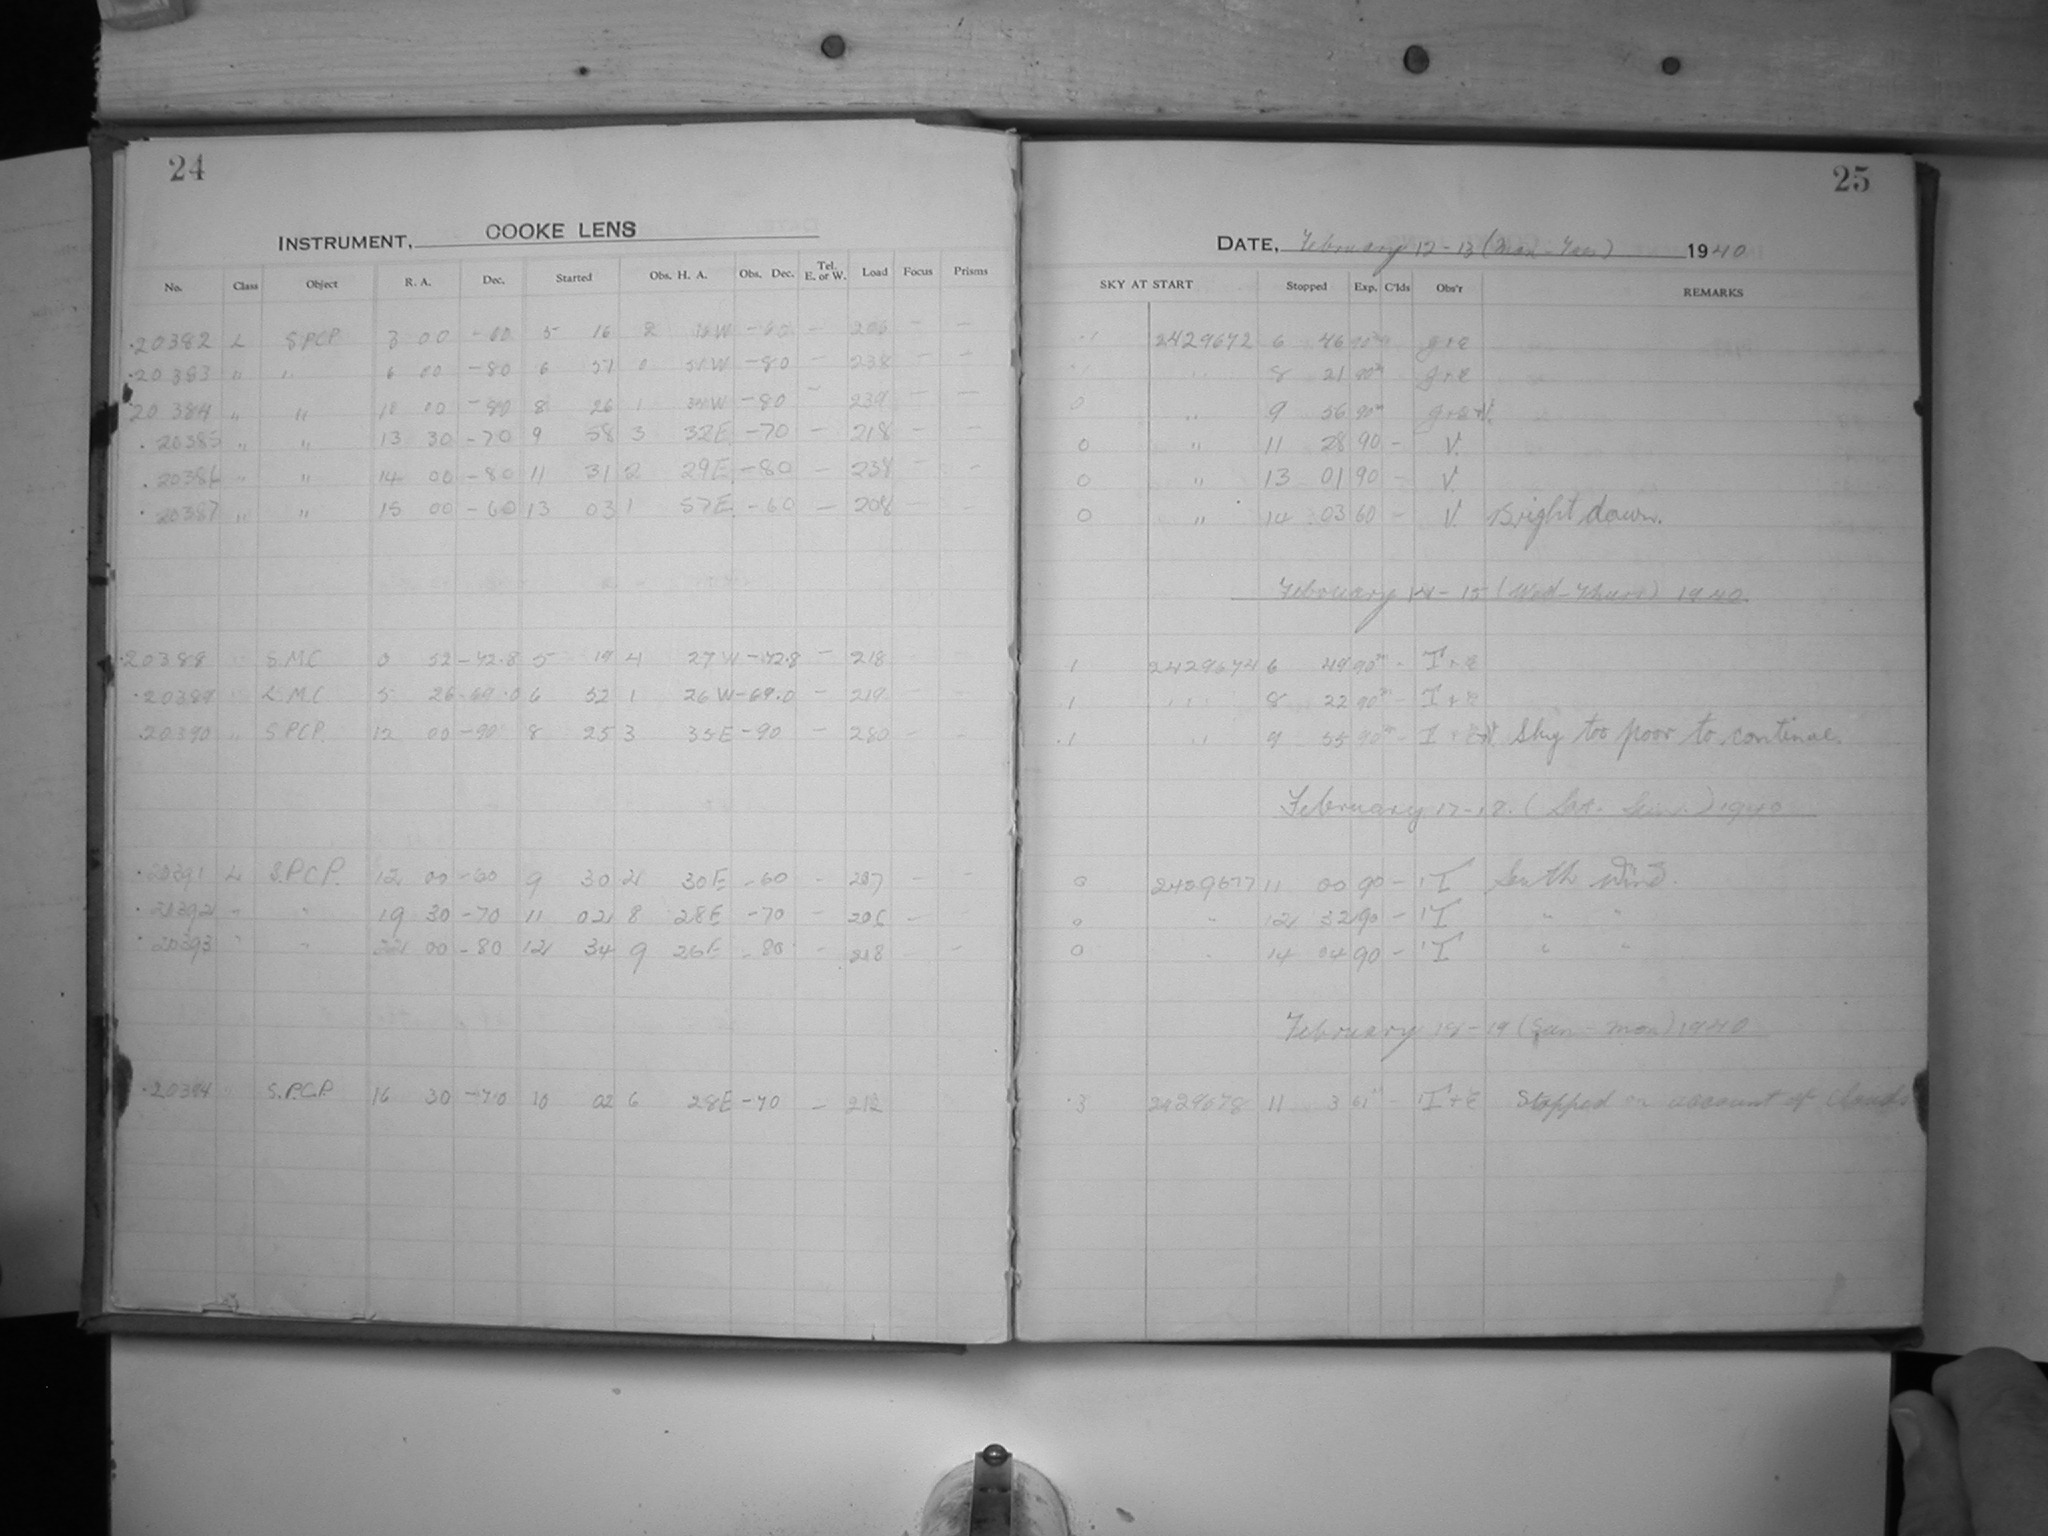 24
INSTRUMENT, COOKE LENS
No. Class Object R. A. Dec. Started Obs. H. A. Obs. Dec. Tel. E. or W. Load Focus Prisms
20382 L S.P.C.P. 3 00 -60 5 16 2 W -60 - 206 - -
20383 " " 6 00 -80 6 51 0 51W -80 - 238 - -
20384 " " 10 00 -80 8 26 1 W -80 - 239 - -
20385 " " 13 30 -70 9 58 3 32E -70 - 218 - -
20386 " " 14 00 -80 11 31 2 29E -80 - 238 - -
20387 " " 15 00 -60 13 03 1 57E -60 - 208 - -
20388 S.M.C 0 52 -72.8 5 19 4 27W -72.8 - 218 - -
20389 L.M.C 5 26 -69.0 6 52 1 26W -69.0 - 219 - -
20390 " S.P.C.P. 12 00 -90 8 25 3 35E -90 - 280 - -
20391 L S.P.C.P. 12 00 -60 9 30 2 30E -60 - 207 - -
20392 " " 19 30 -70 11 02 8 28E -70 - 206 - -
20393 " " 22 00 -80 12 34 9 26E -80 - 218 - -
20394 S.P.C.P. 16 30 -70 10 02 6 28E -70 - 212
25
DATE, February 12-13 (Mon-Tues) 1940
SKY AT START Stopped Exp. C'lds Obs'r REMARKS
.1 2429672 6 46 90m g+e
" 8 21 90m g+e
0 " 9 56 90m g+e+V.
0 " 11 28 90 - V.
0 " 13 01 90 - V.
0 " 14 03 60 - V. Bright dawn.
February 14-15 (Wed-Thurs) 1940
.1 2429674 6 49 90m - I+e
.1 " 8 22 90m - I+e
.1 " 9 55 90m - I+e+V Sky too poor to continue.
February 17-18. (Sat.-Sun.) 1940
0 2429677 11 00 90 - I South Wind.
0 " 12 32 90 - I " "
0 " 14 04 90 - I " "
February 18-19 (Sun-Mon) 1940
.3 2429678 11 3 61m - I+e Stopped on account of Clouds